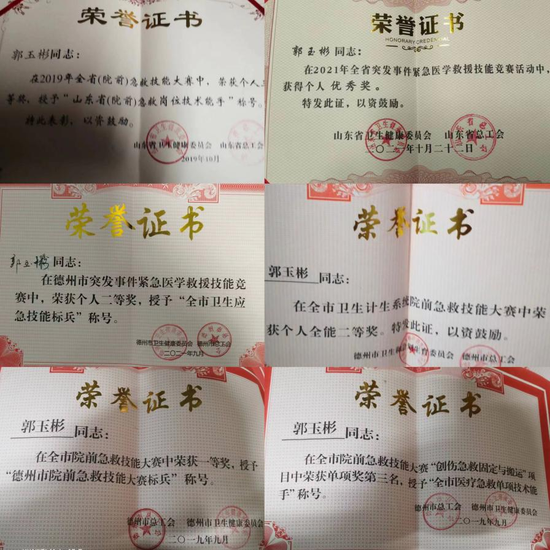 荣誉证书
郭玉彬同志：
在2019年全省(院前)急救技能大赛中，荣获个人
等奖，授予“山东省(院前)急救岗位技术能手”称号。
特此表彰，以资鼓励。
山东省卫生健康委员会 山东省总工会
2019年10月
荣誉证书
HONORARY CREDENTIAL
郭玉彬同志：
在2021年全省突发事件紧急医学救援技能竞赛活动中，
获得个人 优秀奖。
特发此证，以资鼓励。
山东省卫生健康委员会 山东省总工会
二〇二一年十月二十二日
荣誉证书
郭玉彬同志：
在德州市突发事件紧急医学救援技能竞
赛中，荣获个人二等奖，授予“全市卫生应
急技能标兵”称号。
德州市卫生健康委员会 德州市总工会
二〇二一年九月
荣誉证书
郭玉彬同志：
在全市卫生计生系统院前急救技能大赛中荣
获个人全能二等奖。特发此证，以资鼓励。
德州市卫生 计划生育委员会 德州市总工会
荣誉证书
郭玉彬同志：
在全市院前急救技能大赛中荣获一等奖，授予
“德州市院前急救技能大赛标兵”称号。
德州市总工会 德州市卫生健康委员会
二〇一九年九月
荣誉证书
郭玉彬同志：
在全市院前急救技能大赛“创伤急救固定与搬运”项
目中荣获单项奖第三名，授予“全市医疗急救单项技术能
手”称号。
德州市总工会 德州市卫生健康委员会
二〇一九年九月